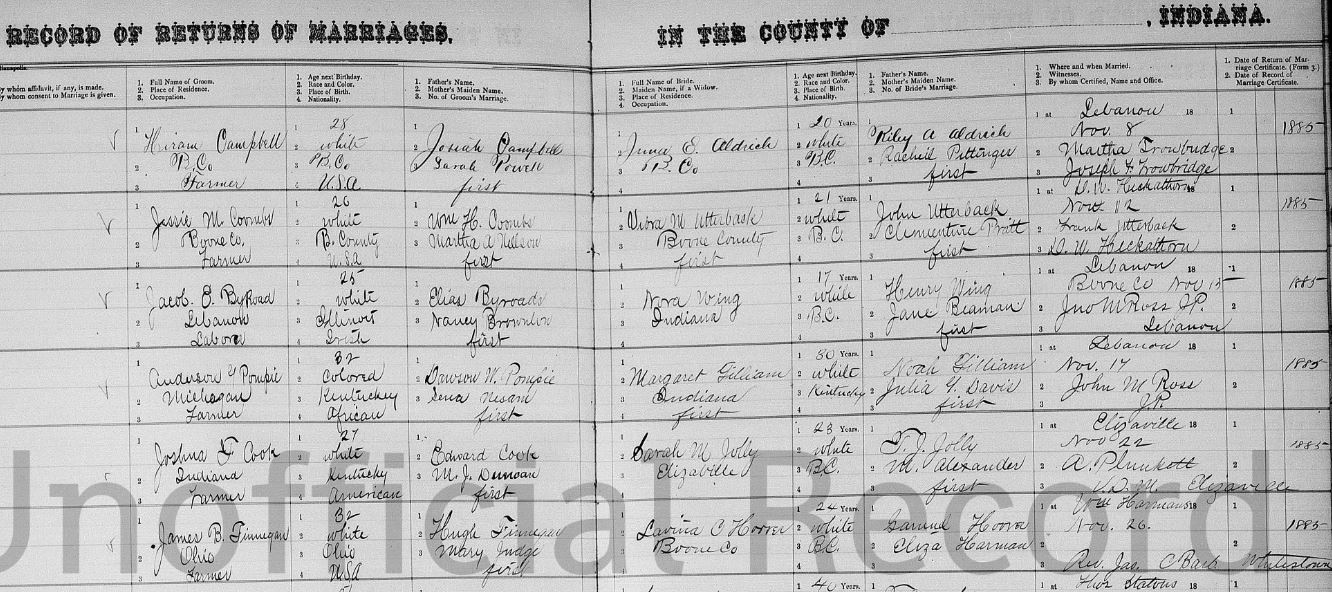 RECORD OF RETURNS OF MARRIAGES, IN THE COUNTY OF , INDIANA.
By whom affidavit, if any, is made.
By whom consent to Marriage is given.
1. Full Name of Groom.
2. Place of Residence.
3. Occupation.
1. Age next Birthday.
2. Race and Color.
3. Place of Birth.
4. Nationality.
1. Father's Name.
2. Mother's Maiden Name.
3. No. of Groom's Marriage.
1. Full Name of Bride.
2. Maiden Name, if a Widow.
3. Place of Residence.
4. Occupation.
1. Age next Birthday.
2. Race and Color.
3. Place of Birth.
4. Nationality.
1. Father's Name.
2. Mother's Maiden Name.
3. No. of Bride's Marriage.
1. Where and when Married.
2. Witnesses.
3. By whom Certified, Name and Office.
1. Date of Return of Marriage Certificate. (Form 3.)
2. Date of Record of Marriage Certificate.
Hiram Campbell
B. Co
Farmer
28
white
B. Co
U.S.A
Josiah Campbell
Sarah Powell
first
E. Aldrich
B. Co
20 Years.
white
B.C.
Riley A Aldrich
Rachell Pittinger
first
at Lebanon 18
Nov. 8
Martha Trowbridge
Joseph Trowbridge
1885
Jessie M. Coombs
Boone Co,
Farmer
26
white
B. County
U.S.A
Wm H. Coombs
Martha A Nelson
first
M Utterback
Boone County
first
21 Years.
white
B. C.
John Utterback
Clementine Pratt
first
at D. W. Heckathorn 18
Nov 12
Frank Utterback
D. W. Heckathorn
1885
Jacob E. ByRoad
Lebanon
Labor
25
white
Illinois
Irish
Elias Byroads
Nancy Brownlow
first
Nora Wing
Indiana
17 Years.
white
B.C.
Henry Wing
Jane Beaman
first
at Lebanon 18
Boone Co Nov 15
Jno M Ross J.P.
Lebanon
1885
Anderson Pompie
Michagan
Farmer
32
Colored
Kentuckey
African
Dawson W. Pompie
first
Margaret Gilliam
Indiana
first
30 Years.
white
Kentucky
Noah Gilliam
Julia Y Davis
first
at Lebanon 18
Nov. 17
John M Ross
J.P.
1885
Joshua F Cook
Indiana
Farmer
27
white
Kentuckey
American
Edward Cook
M. J. Duncan
first
Sarah M Jolly
Elizaville
23 Years.
white
B.C.
T. J. Jolly
M. Alexander
first
at Elizaville 18
Nov 22
A. Plunkett
V. D. M. Elizaville
1885
James B. Finnegan
Ohio
Farmer
32
white
Ohio
U.S.A
Hugh Finnegan
Mary Judge
first
Lavina C Hoover
Boone Co
24 Years.
white
B.C.
Samuel Hoover
Eliza Harman
at Wm Harmans 18
Nov. 26.
Rev. Jas. C Barb Whitestown
1885
40 Years.
at Thos 18
Unofficial Record